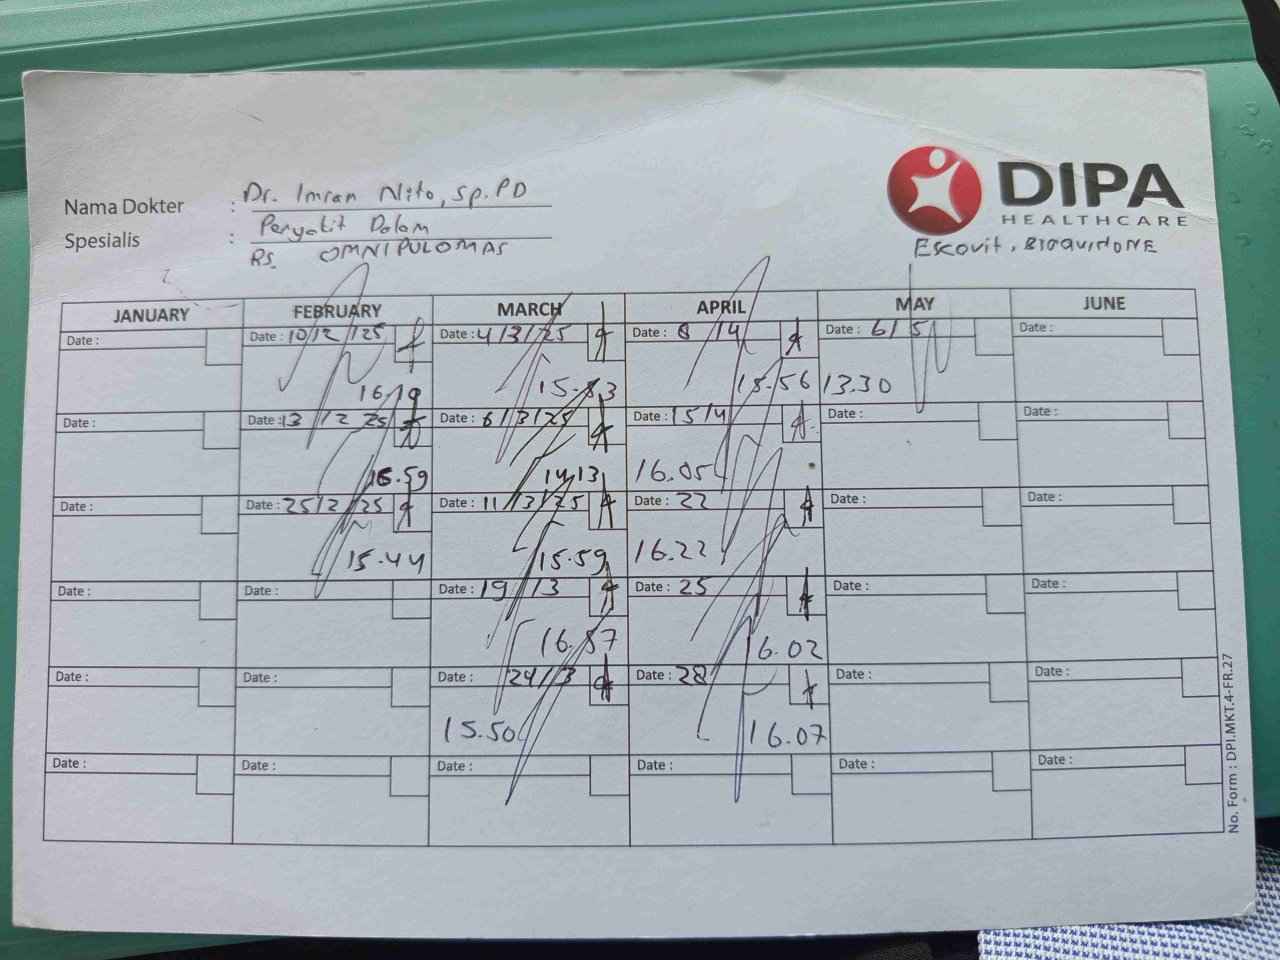 DIPA
HEALTHCARE
Nama Dokter : Dr. Imran Nito, Sp.PD
Spesialis : Penyakit Dalam
RS. OMNI PULOMAS
Escovit, BIOQUINONE
JANUARY FEBRUARY MARCH APRIL MAY JUNE
Date : Date : 10/2/25 Date : 4/3/25 Date : 8/4 Date : 6/5 Date :
16.19 15.53 15.56 13.30
Date : Date : 13/2 25 Date : 6/3/25 Date : 15/4 Date : Date :
15.59 14.13 16.05
Date : Date : 25/2/25 Date : 11/3/25 Date : 22 Date : Date :
15.44 15.59 16.22
Date : Date : Date : 19/3 Date : 25 Date : Date :
16.57 16.02
Date : Date : Date : 24/3 Date : 28 Date : Date :
15.50 16.07
Date : Date : Date : Date : Date : Date :
No. Form : DPI.MKT.4-FR.27